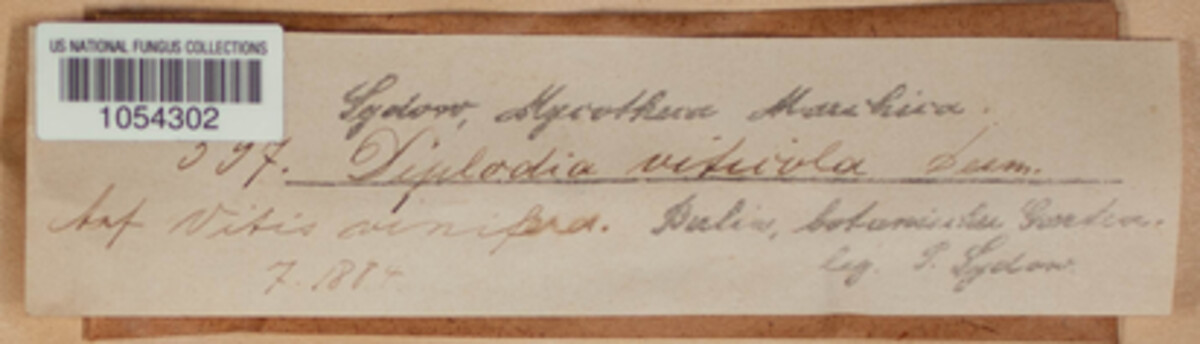 US NATIONAL FUNGUS COLLECTIONS
1054302
Sydow, Mycotheca Marchica.
597. Diplodia viticola Desm.
Auf Vitis vinifera. Berlin, botanischer Garten.
7. 1884 leg. P. Sydow